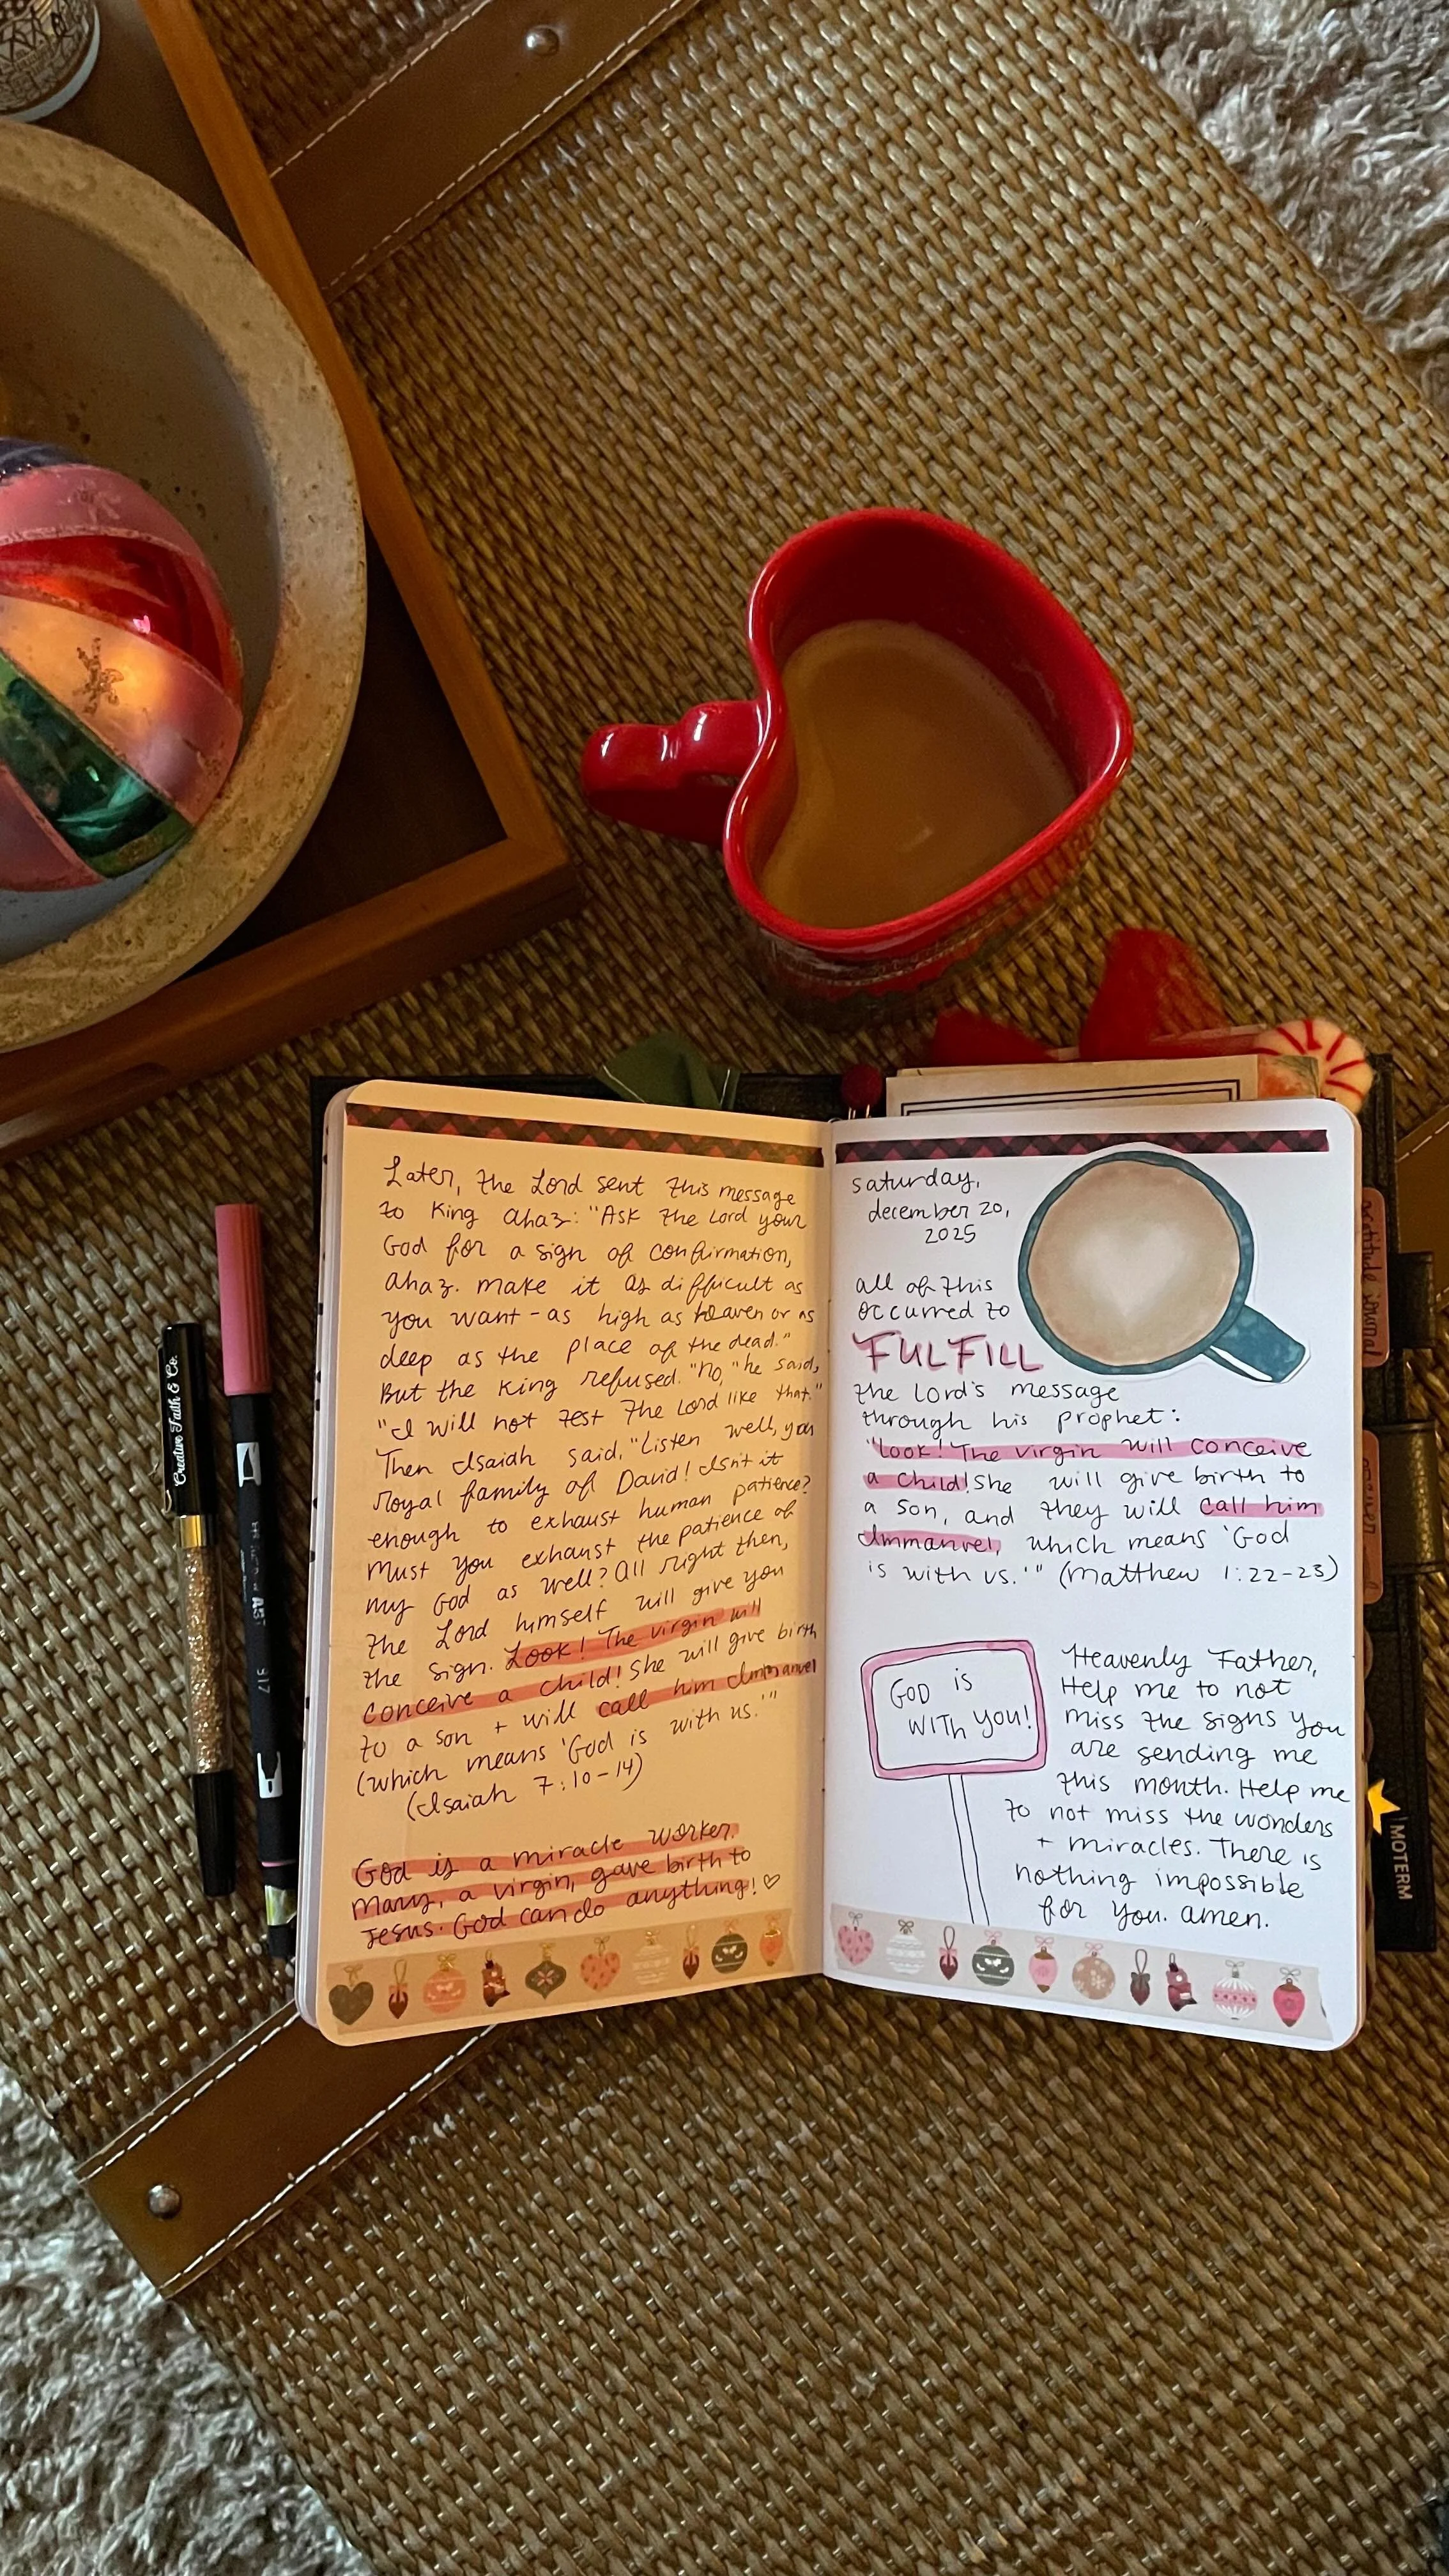 Later, the Lord sent this message
to King Ahaz: "Ask the Lord your
God for a sign of confirmation,
Ahaz. make it as difficult as
you want - as high as heaven or as
deep as the place of the dead."
But the King refused. "No," he said,
"I will not test the Lord like that."
Then Isaiah said, "Listen well, you
royal family of David! Isn't it
enough to exhaust human patience?
Must you exhaust the patience of
my God as well? All right then,
the Lord himself will give you
the sign. Look! The virgin will
conceive a child! She will give birth
to a son + will call him Immanuel
(which means 'God is with us.'"
(Isaiah 7:10-14)
God is a miracle worker.
Mary, a virgin, gave birth to
Jesus. God can do anything! ♡
saturday,
december 20,
2025
all of this
occurred to
FULFILL
the Lord's message
through his prophet:
"Look! The virgin will conceive
a child! She will give birth to
a son, and they will call him
Immanuel, which means 'God
is with us.'" (Matthew 1:22-23)
GOD is
WITH you!
Heavenly Father,
Help me to not
miss the signs you
are sending me
this month. Help me
to not miss the wonders
+ miracles. There is
nothing impossible
for you. amen.
Creative Faith & Co.
817
MOTERM